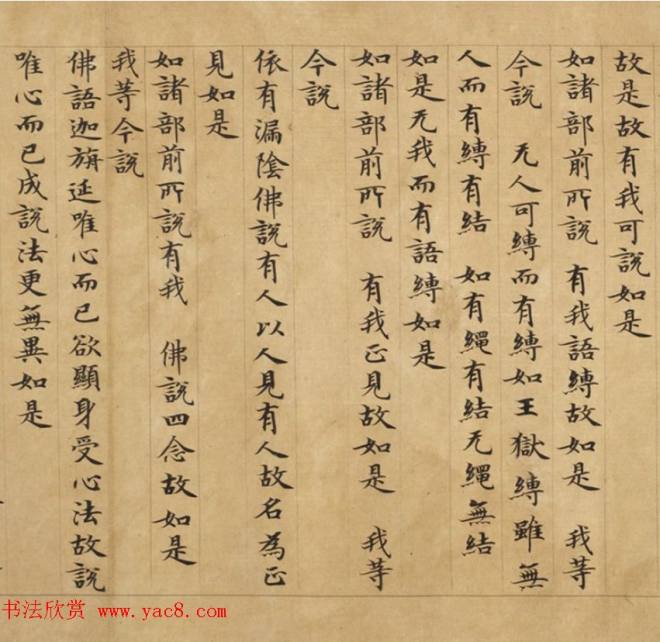 故是故有我可說如是
如諸部前所說 有我語縛故如是 我等
今說 无人可縛而有縛如王獄縛雖無
人而有縛有結 如有繩有結无繩無結
如是无我而有語縛如是
如諸部前所說 有我正見故如是 我等
今說
依有漏陰佛說有人以人見有人故名為正
見如是
如諸部前所說有我 佛說四念故如是
我等今說
佛語迦旃延唯心而已欲顯身受心法故說
唯心而已成說法更無異如是
书法欣赏 www.yac8.com